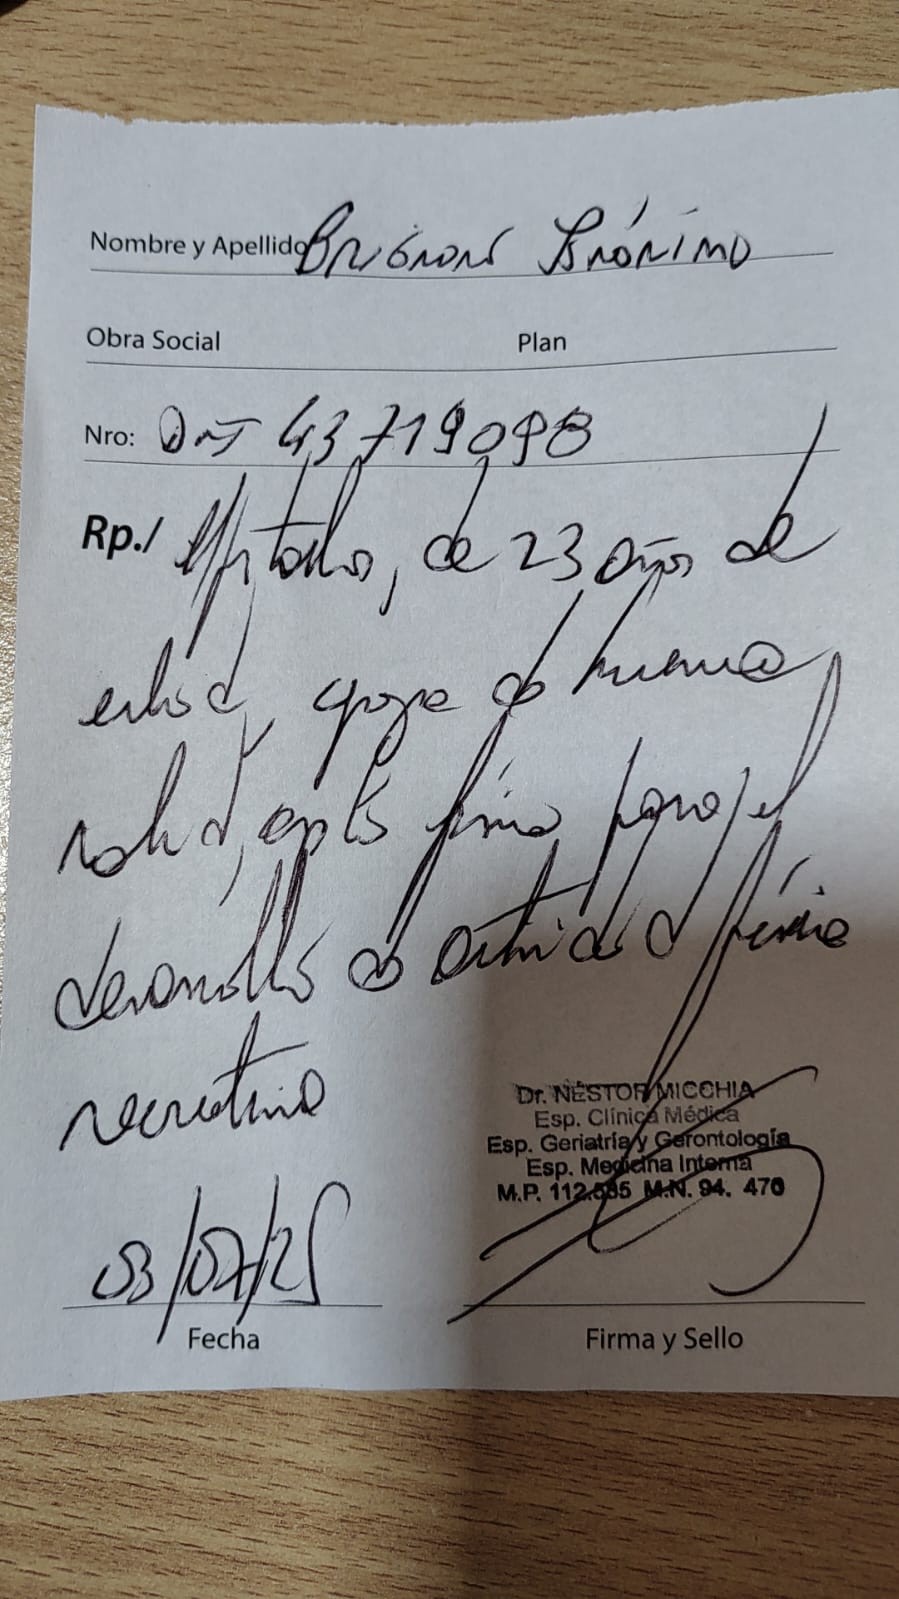 Nombre y Apellido Brignoni Jerónimo
Obra Social Plan
Nro: DNI 43719098
Rp./ , de 23 años de
edad, goza de buena
salud, apto físico para el
desarrollo de actividad física
recreativa
Dr. NÉSTOR MICCHIA
Esp. Clínica Médica
Esp. Geriatría y Gerontología
Esp. Medicina Interna
M.P. 112.535 M.N. 94. 470
03/07/25
Fecha Firma y Sello